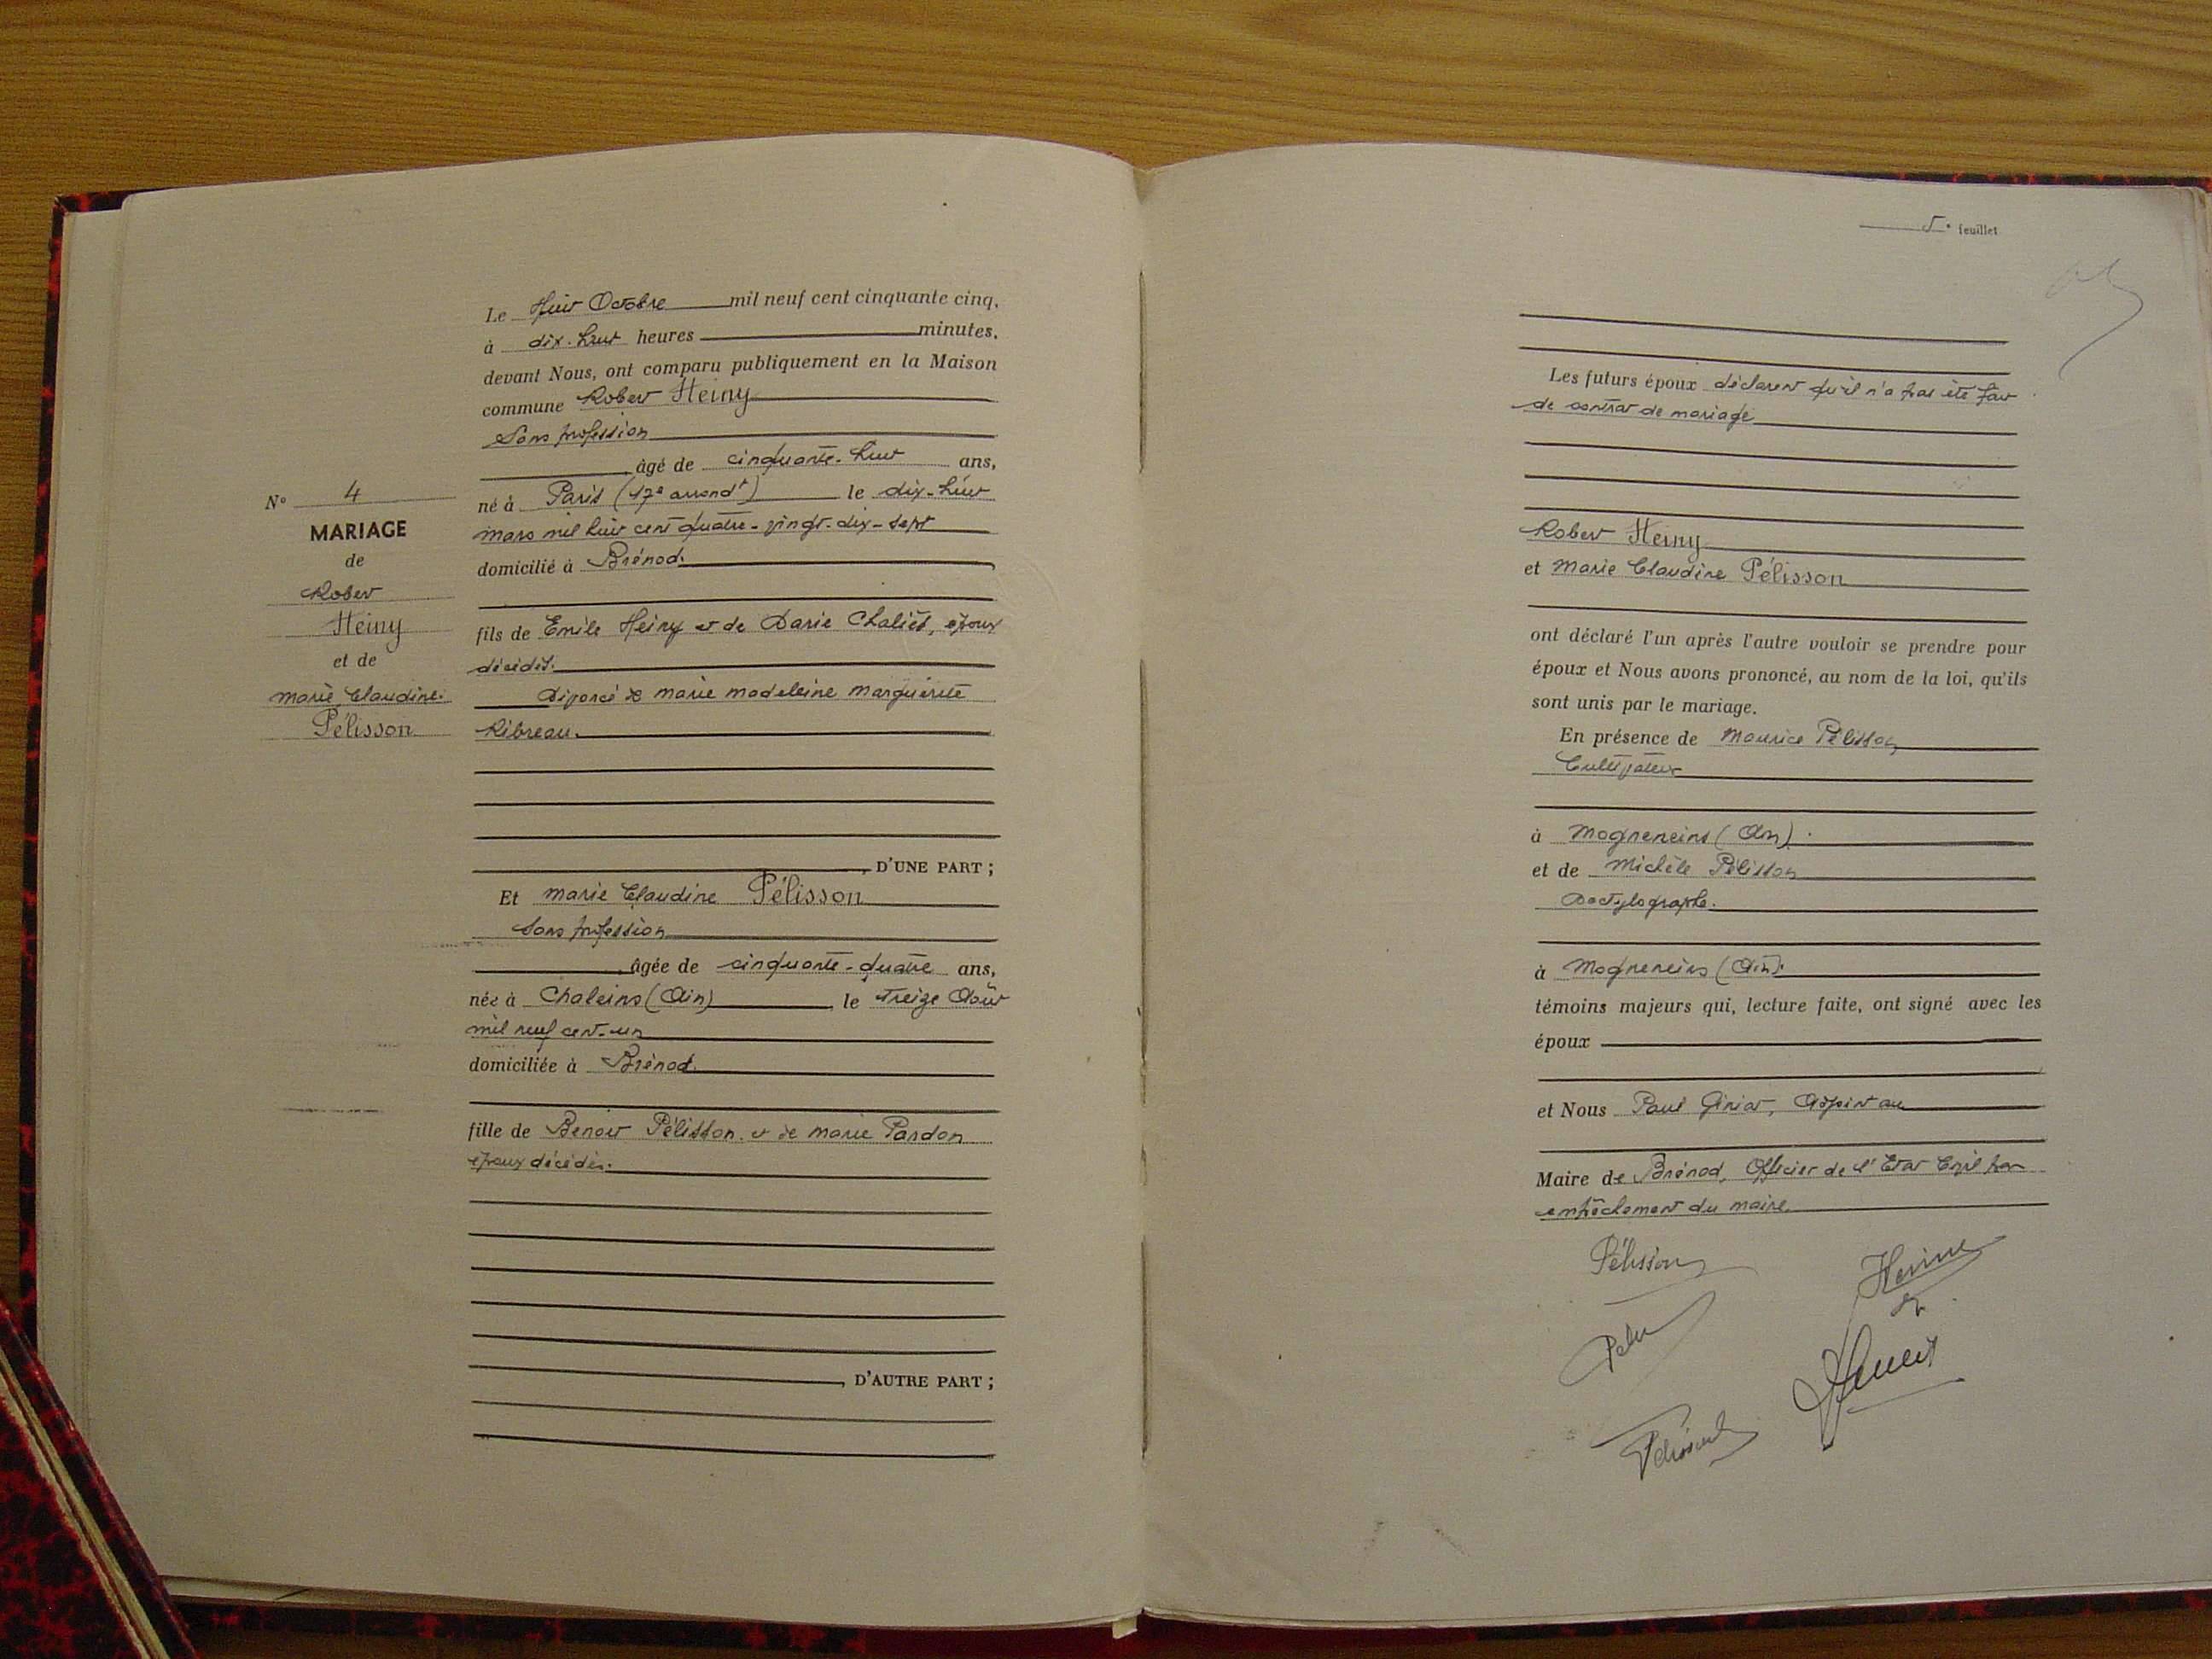 Le Huit Octobre mil neuf cent cinquante cinq,
à dix-huit heures minutes,
devant Nous, ont comparu publiquement en la Maison
commune Robert Heiny
Sans profession
âgé de cinquante-huit ans,
né à Paris (17e arrondt) le dix-huit
mars mil huit cent quatre-vingt-dix-sept
domicilié à Brénod.
fils de Emile Heiny et de Marie Chaliès, époux
décédés.
Divorcé de Marie Madeleine Marguerite
Ribreau.
D'UNE PART ;
N° 4
MARIAGE
de
Robert
Heiny
et de
Marie Claudine
Pélisson
Et Marie Claudine Pélisson
Sans profession
âgée de cinquante-quatre ans,
née à Chaleins (Ain) le treize Août
mil neuf cent-un
domiciliée à Brénod.
fille de Benoit Pélisson et de Marie Pardon
époux décédés.
D'AUTRE PART ;
5e feuillet
Les futurs époux déclarent qu'il n'a pas été fait
de contrat de mariage
Robert Heiny
et Marie Claudine Pélisson
ont déclaré l'un après l'autre vouloir se prendre pour
époux et Nous avons prononcé, au nom de la loi, qu'ils
sont unis par le mariage.
En présence de Maurice Pélisson
Cultivateur
à Mogneneins (Ain).
et de Michèle Pélisson
Dactylographe.
à Mogneneins (Ain).
témoins majeurs qui, lecture faite, ont signé avec les
époux
et Nous Paul Adjoint au
Maire de Brénod, Officier de l'Etat Civil par
empêchement du maire.
Pélisson